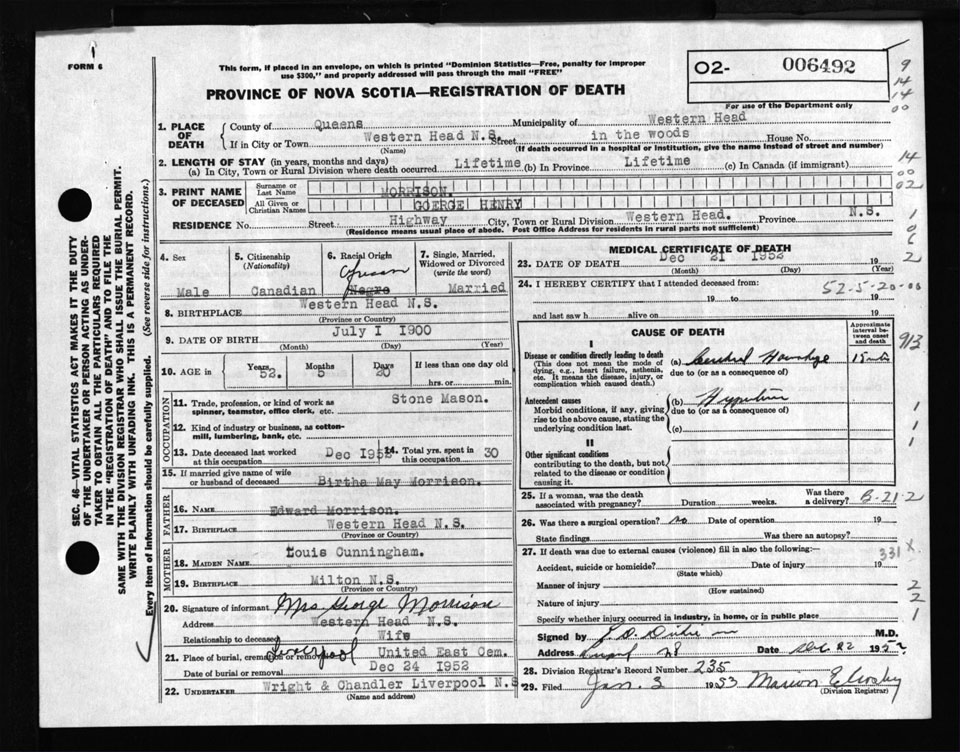 FORM 6
This form, if placed in an envelope, on which is printed "Dominion Statistics—Free, penalty for improper
use $300," and properly addressed will pass through the mail "FREE"
O2- 006492
For use of the Department only
PROVINCE OF NOVA SCOTIA—REGISTRATION OF DEATH
1. PLACE OF DEATH { County of Queens Municipality of Western Head
If in City or Town Western Head N.S. Street in the woods House No.
(Name) (If death occurred in a hospital or institution, give the name instead of street and number)
2. LENGTH OF STAY (in years, months and days)
(a) In City, Town or Rural Division where death occurred Lifetime (b) In Province Lifetime (c) In Canada (if immigrant)
3. PRINT NAME OF DECEASED { Surname or Last Name MORRISON.
All Given or Christian Names GOERGE HENRY
RESIDENCE No. Street Highway City, Town or Rural Division Western Head. Province N.S.
(Residence means usual place of abode. Post Office Address for residents in rural parts not sufficient)
4. Sex Male
5. Citizenship (Nationality) Canadian
6. Racial Origin Negro
7. Single, Married, Widowed or Divorced (write the word) Married
8. BIRTHPLACE Western Head N.S.
(Province or Country)
9. DATE OF BIRTH July I 1900
(Month) (Day) (Year)
10. AGE in Years 52. Months 5 Days 20 If less than one day old hrs. or min.
OCCUPATION
11. Trade, profession, or kind of work as spinner, teamster, office clerk, etc. Stone Mason.
12. Kind of industry or business, as cotton-mill, lumbering, bank, etc.
13. Date deceased last worked at this occupation Dec 1952 14. Total yrs. spent in this occupation 30
15. If married give name of wife or husband of deceased Birtha May Morrison.
FATHER
16. NAME Edward Morrison.
17. BIRTHPLACE Western Head N.S.
(Province or Country)
MOTHER
18. MAIDEN NAME Louis Cunningham.
19. BIRTHPLACE Milton N.S.
(Province or Country)
20. Signature of informant Mrs George Morrison
Address Western Head N.S.
Relationship to deceased Wife
21. Place of burial, cremation or removal Liverpool United East Cem.
Date of burial or removal Dec 24 1952
22. UNDERTAKER Wright & Chandler Liverpool N.S
(Name and address)
MEDICAL CERTIFICATE OF DEATH
23. DATE OF DEATH Dec 21 1952 19
(Month) (Day) (Year)
24. I HEREBY CERTIFY that I attended deceased from:
19 to 19
and last saw h alive on 19
52-5-20-00
CAUSE OF DEATH
Approximate interval between onset and death
I
Disease or condition directly leading to death
(This does not mean the mode of dying, e.g., heart failure, asthenia, etc. It means the disease, injury, or complication which caused death.)
(a) Cerebral
due to (or as a consequence of)
Antecedent causes
Morbid conditions, if any, giving rise to the above cause, stating the underlying condition last.
(b)
due to (or as a consequence of)
(c)
II
Other significant conditions
contributing to the death, but not related to the disease or condition causing it.
25. If a woman, was the death associated with pregnancy? Duration weeks. Was there a delivery?
26. Was there a surgical operation? no Date of operation 19
State findings Was there an autopsy?
27. If death was due to external causes (violence) fill in also the following:—
Accident, suicide or homicide? Date of injury 19
(State which)
Manner of injury
(How sustained)
Nature of injury
Specify whether injury occurred in industry, in home, or in public place
Signed by M.D.
Address Date Dec 22 1952
28. Division Registrar's Record Number 235
29. Filed Jan. 3 1953 Marion
(Division Registrar)
9
14
14
00
14
00
02
1
2
913
1
1
1
B-21-2
331 X.
2
2
1
SEC. 46—VITAL STATISTICS ACT MAKES IT THE DUTY
OF THE UNDERTAKER OR PERSON ACTING AS UNDER-
TAKER TO OBTAIN ALL THE PARTICULARS REQUIRED
IN THE "REGISTRATION OF DEATH" AND TO FILE THE
SAME WITH THE DIVISION REGISTRAR WHO SHALL ISSUE THE BURIAL PERMIT.
WRITE PLAINLY WITH UNFADING INK. THIS IS A PERMANENT RECORD.
Every item of information should be carefully supplied. (See reverse side for instructions.)